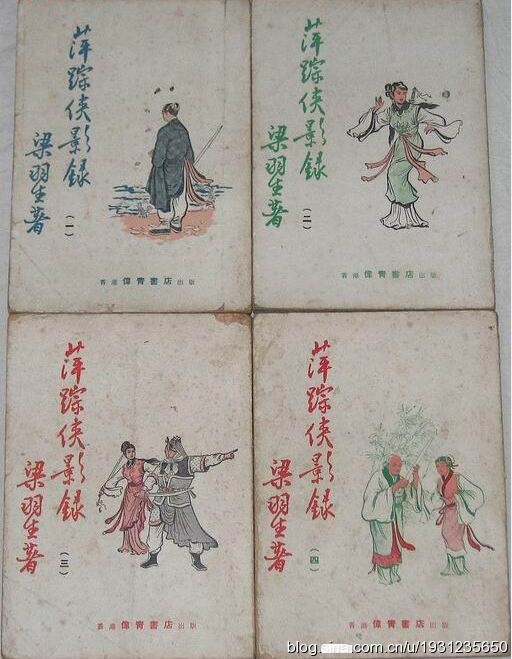 萍踪俠影録
梁羽生著
(一)
香港 偉青書店 出版
萍踪俠影録
梁羽生著
(二)
香港 偉青書店 出版
萍踪俠影録
梁羽生著
(三)
香港 偉青書店 出版
萍踪俠影録
梁羽生著
(四)
香港 偉青書店 出版
blog.sina.com.cn/u/1931235650